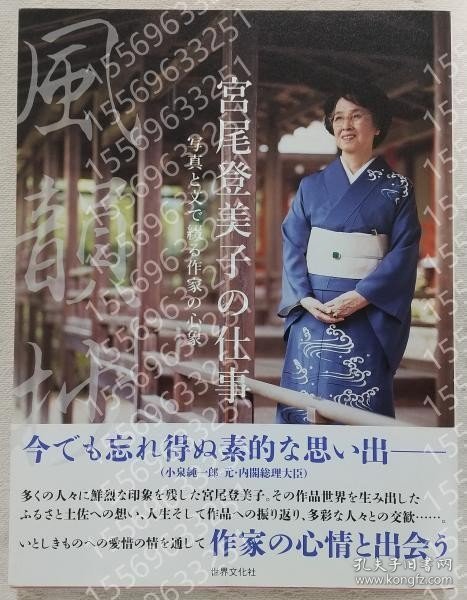 風韻抄
宮尾登美子の仕事
写真と文で綴る作家の心象
今でも忘れ得ぬ素的な思い出――
(小泉純一郎 元・内閣総理大臣)
多くの人々に鮮烈な印象を残した宮尾登美子。その作品世界を生み出した
ふるさと土佐への想い、人生そして作品への振り返り、多彩な人々との交歓……。
いとしきものへの愛惜の情を通して 作家の心情と出会う
世界文化社
15569633251
孔夫子旧书网
www.kongfz.com